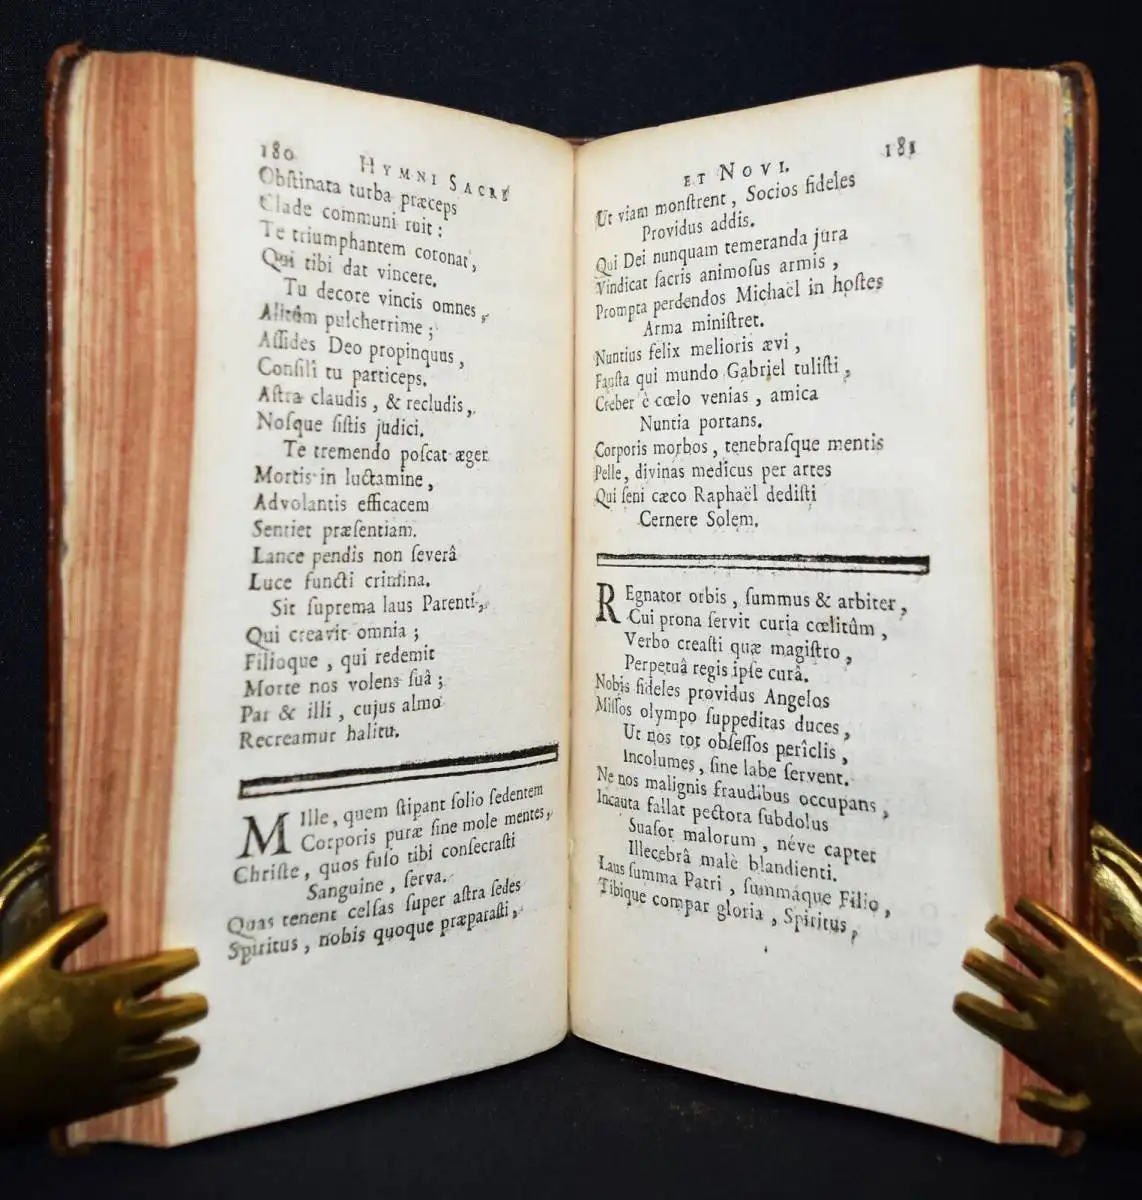 180 HYMNI SACRI
Obſtinata turba præceps
Clade communi ruit :
Te triumphantem coronat ,
Qui tibi dat vincere.
Tu decore vincis omnes ,
Alitûm pulcherrime ;
Aſſides Deo propinquus ,
Conſilî tu particeps.
Aſtra claudis , & recludis ,
Noſque ſiſtis judici.
Te tremendo poſcat æger
Mortis in luctamine ,
Advolantis efficacem
Sentiet præſentiam.
Lance pendis non ſeverâ
Luce functi crimina.
Sit ſuprema laus Parenti ,
Qui creavit omnia ;
Filioque , qui redemit
Morte nos volens ſuâ ;
Par & illi , cujus almo
Recreamur halitu.
MIlle, quem ſtipant ſolio ſedentem
Corporis puræ ſine mole mentes ,
Chriſte , quos fuſo tibi conſecraſti
Sanguine , ſerva.
Quas tenent celſas ſuper aſtra ſedes
Spiritus , nobis quoque præparaſti ,
ET NOVI. 181
Ut viam monſtrent , Socios fideles
Providus addis.
Qui Dei nunquam temeranda jura
Vindicat ſacris animoſus armis ,
Prompta perdendos Michaël in hoſtes
Arma miniſtret.
Nuntius felix melioris ævi ,
Fauſta qui mundo Gabriel tuliſti ,
Creber è cœlo venias , amica
Nuntia portans.
Corporis morbos , tenebraſque mentis
Pelle, divinas medicus per artes
Qui ſeni cæco Raphaël dediſti
Cernere Solem.
REgnator orbis , ſummus & arbiter ,
Cui prona ſervit curia cœlitûm ,
Verbo creaſti quæ magiſtro ,
Perpetuâ regis ipſe curâ.
Nobis fideles providus Angelos
Miſſos olympo ſuppeditas duces ,
Ut nos tot obſeſſos perîclis ,
Incolumes, ſine labe ſervent.
Ne nos malignis fraudibus occupans ,
Incauta fallat pectora ſubdolus
Suaſor malorum , néve captet
Illecebrâ malè blandienti.
Laus ſumma Patri , ſummáque Filio ,
Tibique compar gloria , Spiritus ,